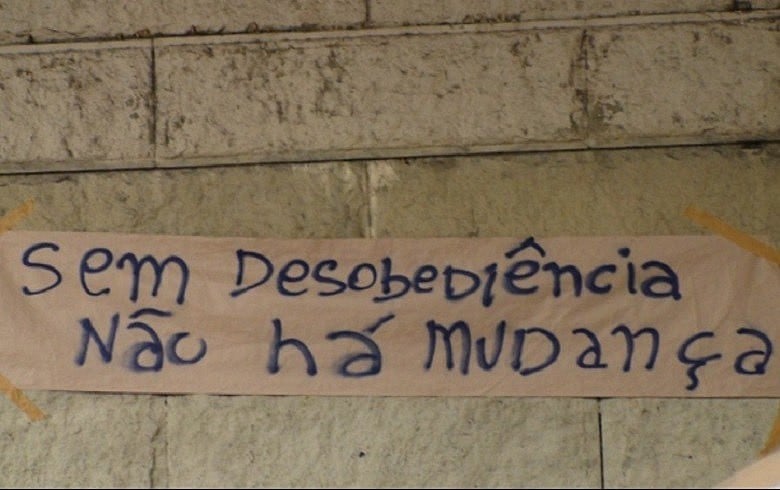 Sem Desobediência
Não há mudança